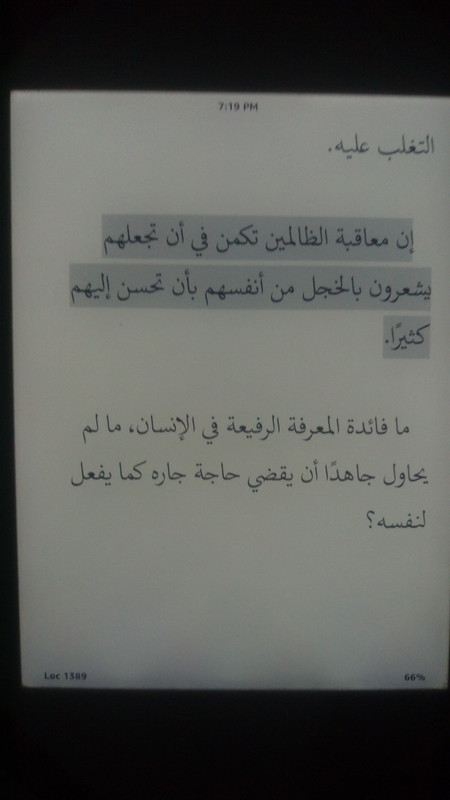 7:19 PM
التغلب عليه.
إن معاقبة الظالمين تكمن في أن تجعلهم
يشعرون بالخجل من أنفسهم بأن تحسن إليهم
كثيرًا.
ما فائدة المعرفة الرفيعة في الإنسان، ما لم
يحاول جاهدًا أن يقضي حاجة جاره كما يفعل
لنفسه؟
Loc 1389 66%